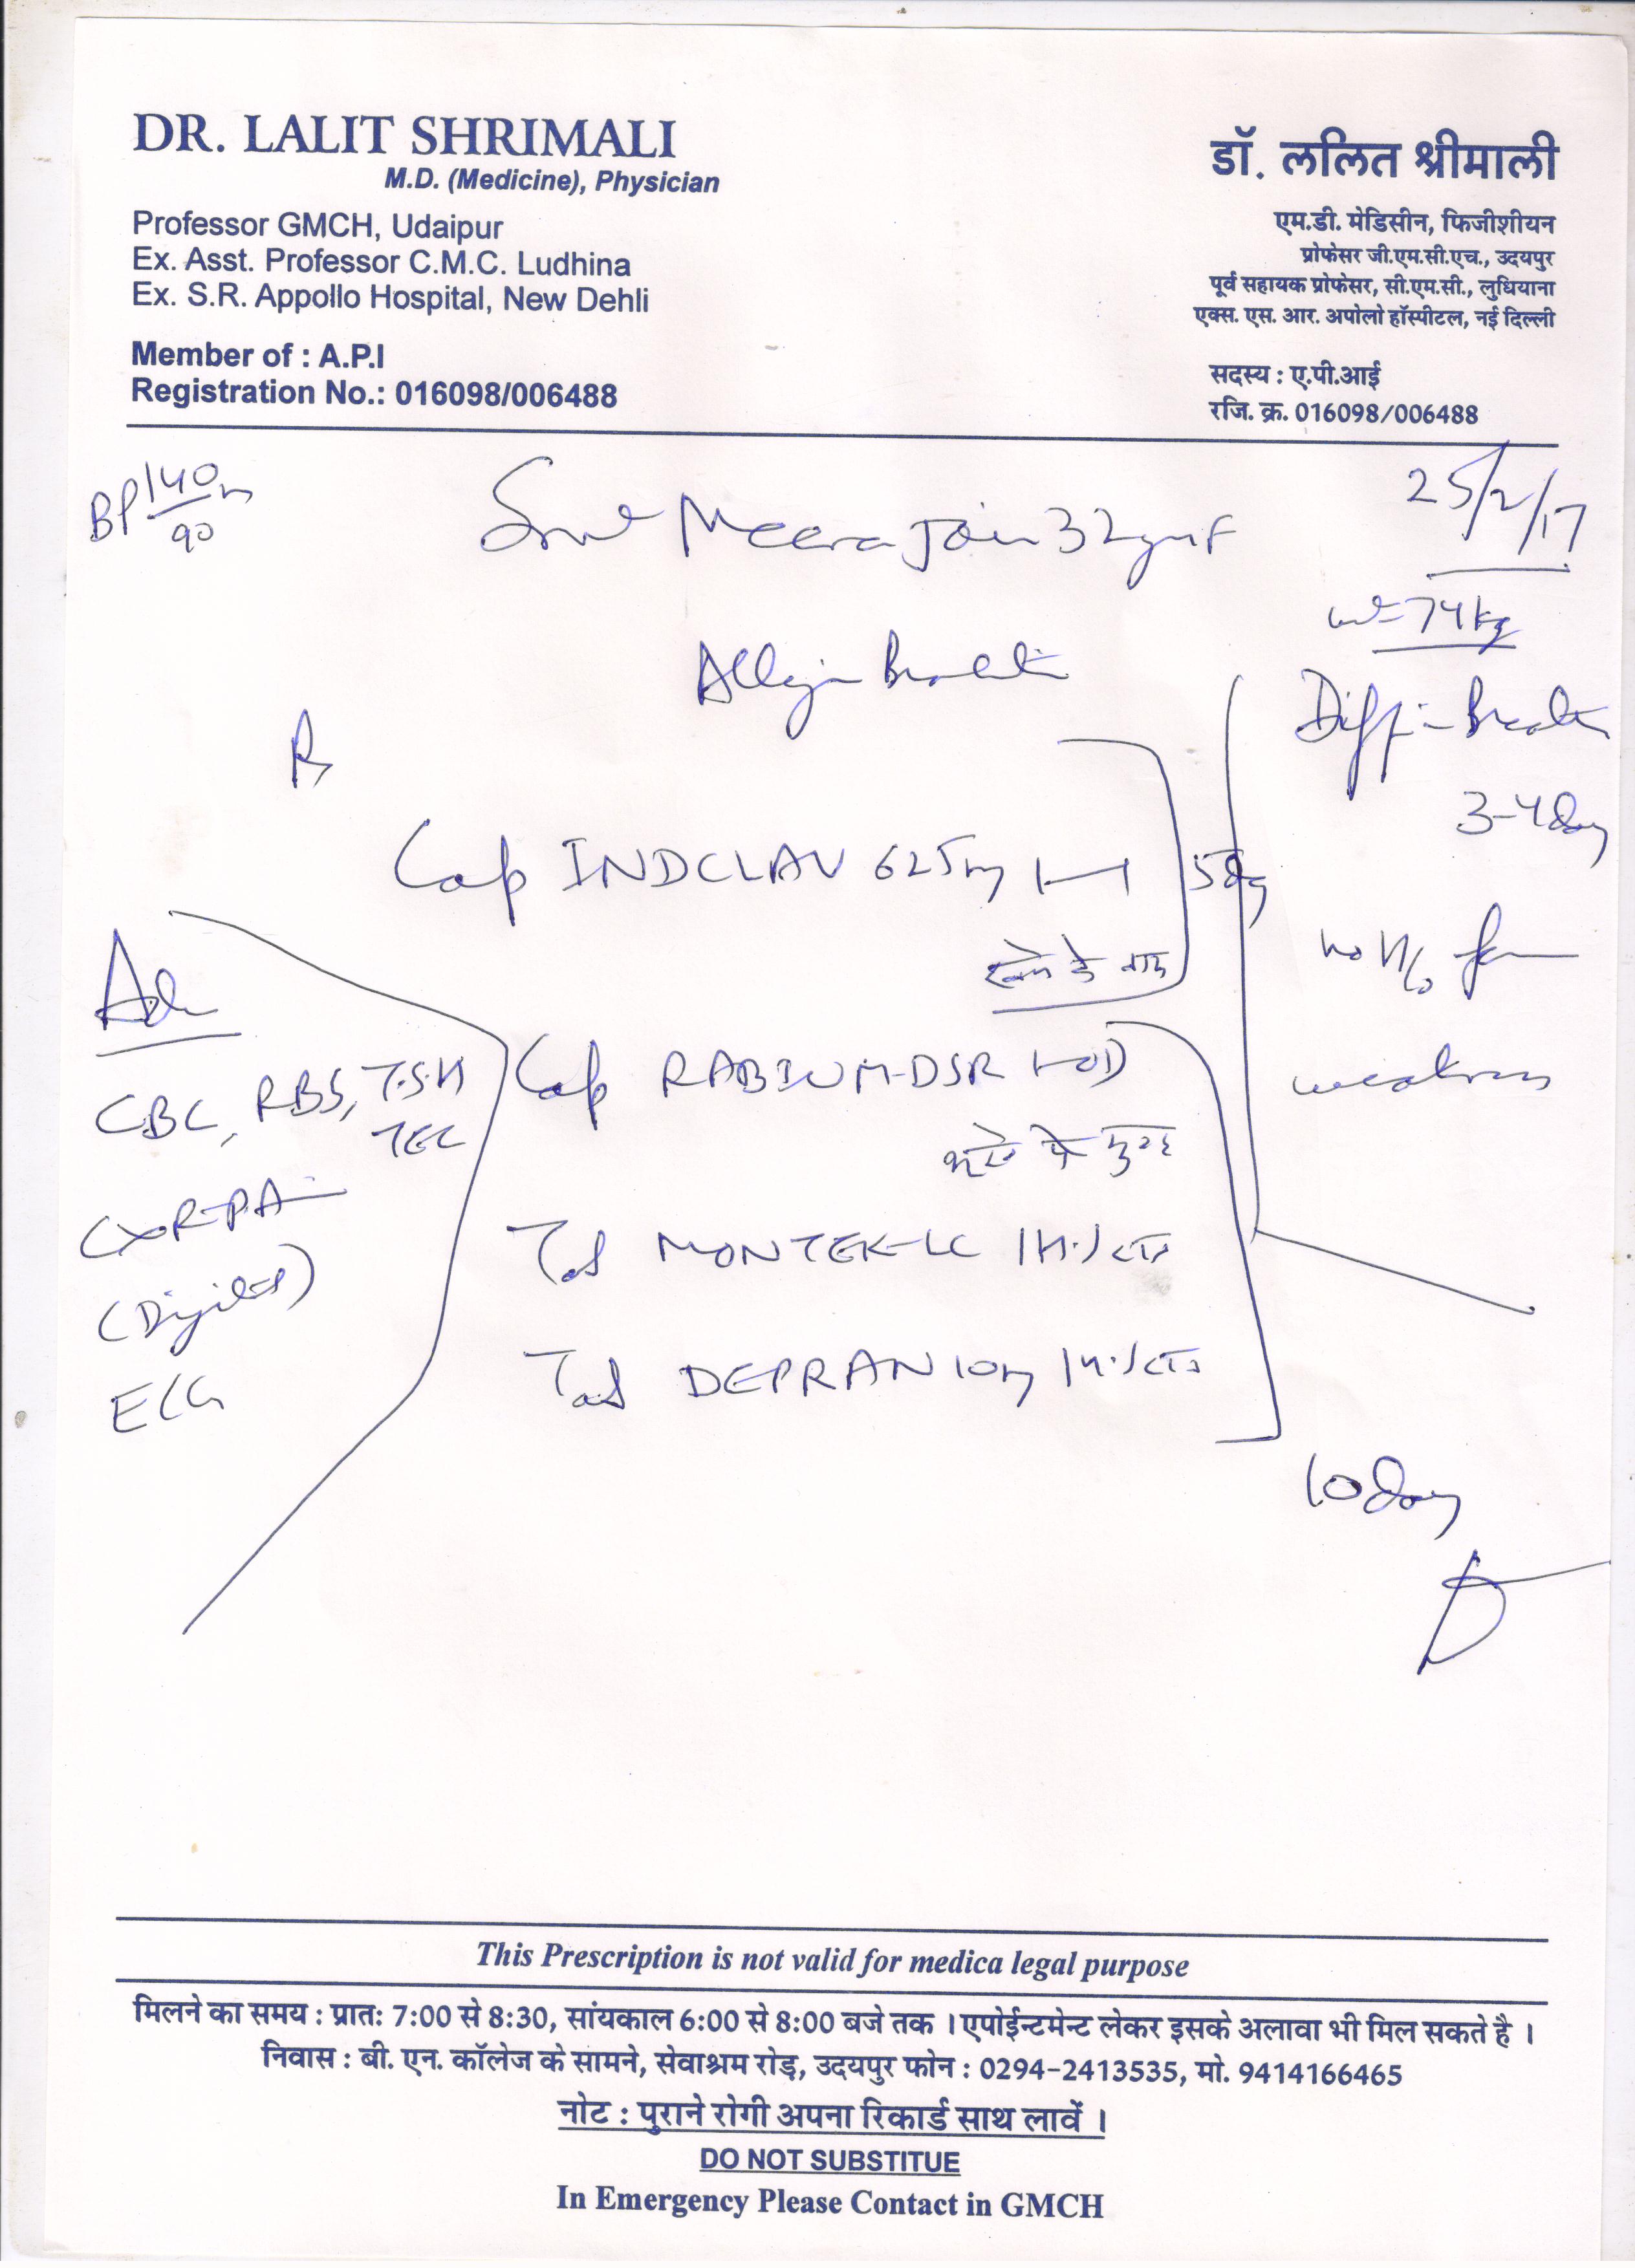 DR. LALIT SHRIMALI
M.D. (Medicine), Physician
Professor GMCH, Udaipur
Ex. Asst. Professor C.M.C. Ludhina
Ex. S.R. Appollo Hospital, New Dehli
Member of : A.P.I
Registration No.: 016098/006488
डॉ. ललित श्रीमाली
एम.डी. मेडिसीन, फिजीशीयन
प्रोफेसर जी.एम.सी.एच., उदयपुर
पूर्व सहायक प्रोफेसर, सी.एम.सी., लुधियाना
एक्स. एस. आर. अपोलो हॉस्पीटल, नई दिल्ली
सदस्य : ए.पी.आई
रजि. क्र. 016098/006488
BP 140/90
25/2/17
Meera Jain 32 F
wt 74kg
3-4 day
Rx
Cap INDCLAV 625mg 1-1 5 day
weakness
CBC, RBS, T.S.H
TEC
CXR-PA
(Digital)
ECG
Cap RABIUM-DSR 1-OD
Tab MONTEK-LC 1 H.S
Tab DEPRAN 10mg 1 H.S
10 day
This Prescription is not valid for medica legal purpose
मिलने का समय : प्रातः 7:00 से 8:30, सांयकाल 6:00 से 8:00 बजे तक । एपोईन्टमेन्ट लेकर इसके अलावा भी मिल सकते है ।
निवास : बी. एन. कॉलेज के सामने, सेवाश्रम रोड़, उदयपुर फोन : 0294-2413535, मो. 9414166465
नोट : पुराने रोगी अपना रिकार्ड साथ लावें ।
DO NOT SUBSTITUE
In Emergency Please Contact in GMCH